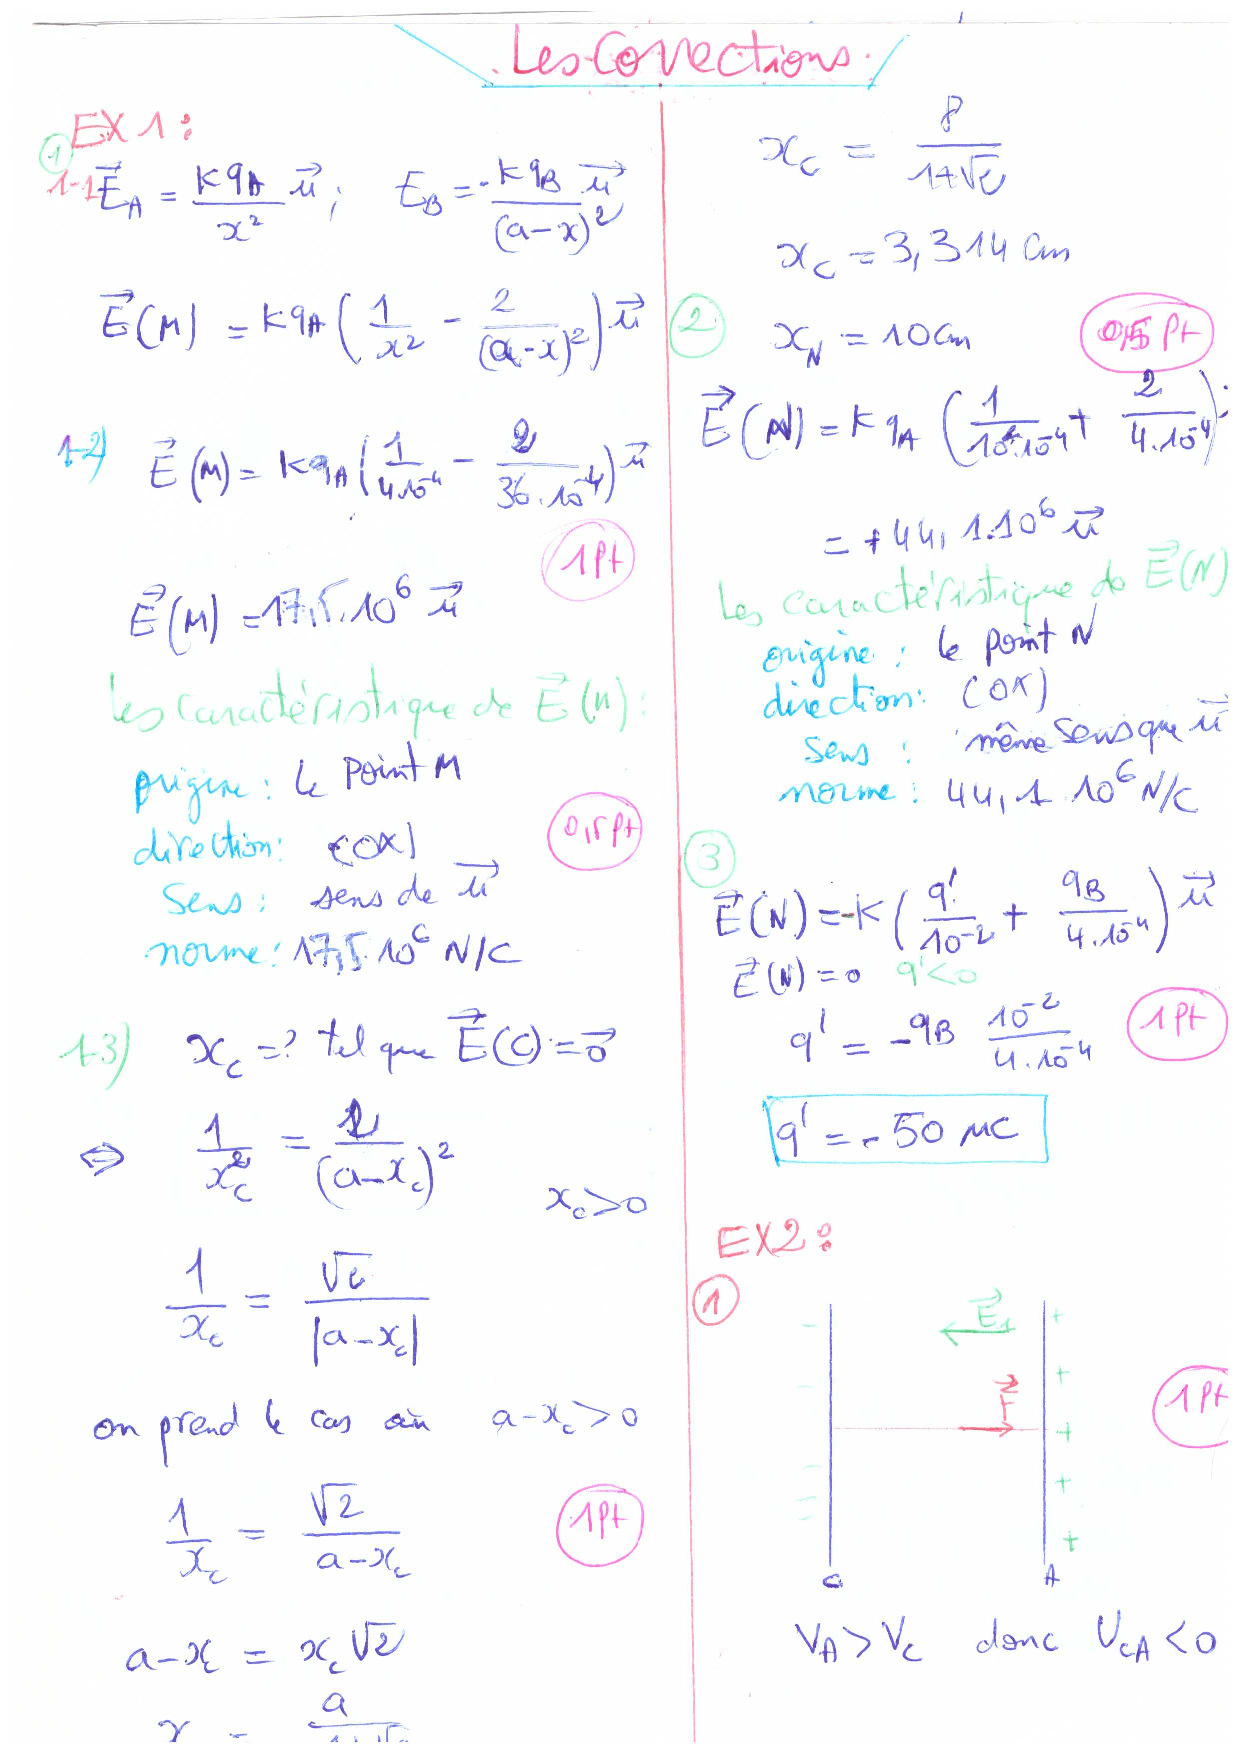 Les Corrections.
EX 1 :
1
1-1 E⃗_A = K q_A / x² u⃗ ; E_B = - K q_B / (a-x)² u⃗
E⃗(M) = K q_A ( 1/x² - 2/(a-x)² ) u⃗
1-2) E⃗(M) = K q_A ( 1/4.10⁻⁴ - 2/36.10⁻⁴ ) u⃗
1 Pt
E⃗(M) = 17,5.10⁶ u⃗
les caractéristique de E⃗(M) :
origine : le Point M
direction : (OX)
0,5 Pt
Sens : sens de u⃗
norme : 17,5 10⁶ N/C
1-3) x_C = ? tel que E⃗(C) = 0⃗
⇔ 1/x_C² = 2/(a-x_C)²
x_C > 0
1/x_C = √2/|a-x_C|
on prend le cas où a-x_C > 0
1/x_C = √2/(a-x_C)
1 Pt
a-x_C = x_C √2
x_C = 8/(1+√2)
x_C = 3,314 cm
2
x_N = 10 cm
0,5 Pt
E⃗(N) = K q_A ( 1/10².10⁻⁴ + 2/4.10⁻⁴ )
= +44,1.10⁶ u⃗
Les caractéristique de E⃗(N)
origine : le point N
direction : (OX)
Sens : même sens que u⃗
norme : 44,1 10⁶ N/C
3
E⃗(N) = -K ( q'/10⁻² + q_B/4.10⁻⁴ ) u⃗
E⃗(N) = 0 q' < 0
q' = -q_B 10⁻²/4.10⁻⁴
1 Pt
q' = -50 μC
EX2 :
1
E⃗₁
F⃗
1 Pt
C A
V_A > V_C donc U_CA < 0